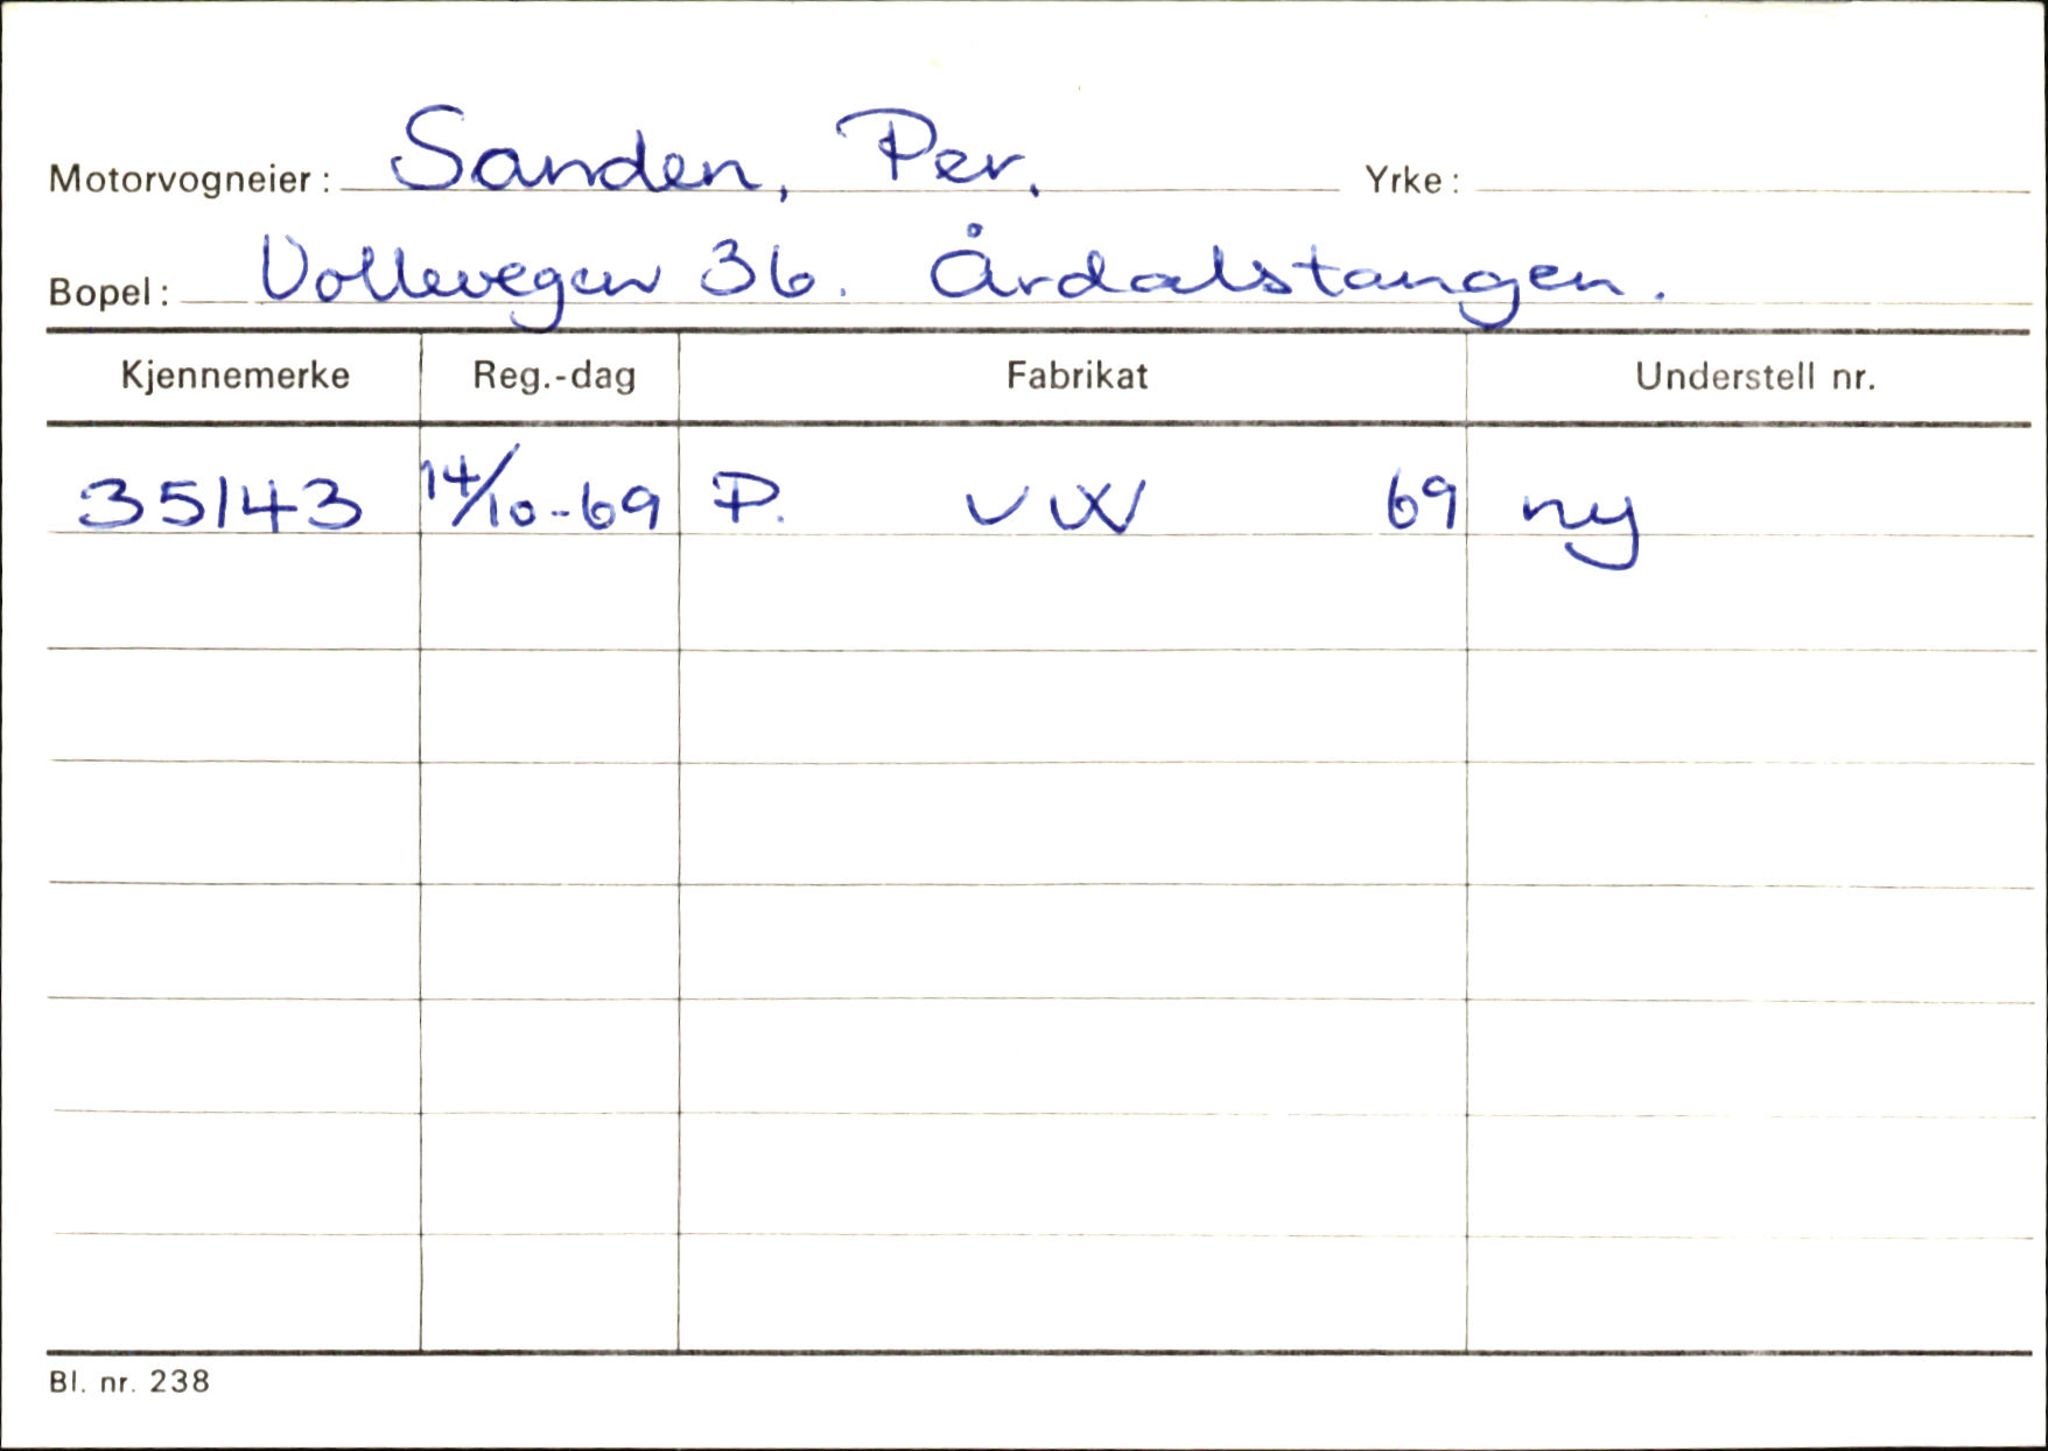 Motorvogneier: Sanden, Per. Yrke:
Bopel: Vollevegen 36. Årdalstangen.
Kjennemerke Reg.-dag Fabrikat Understell nr.
35143 14/10-69 P. VW 69 ny
Bl. nr. 238